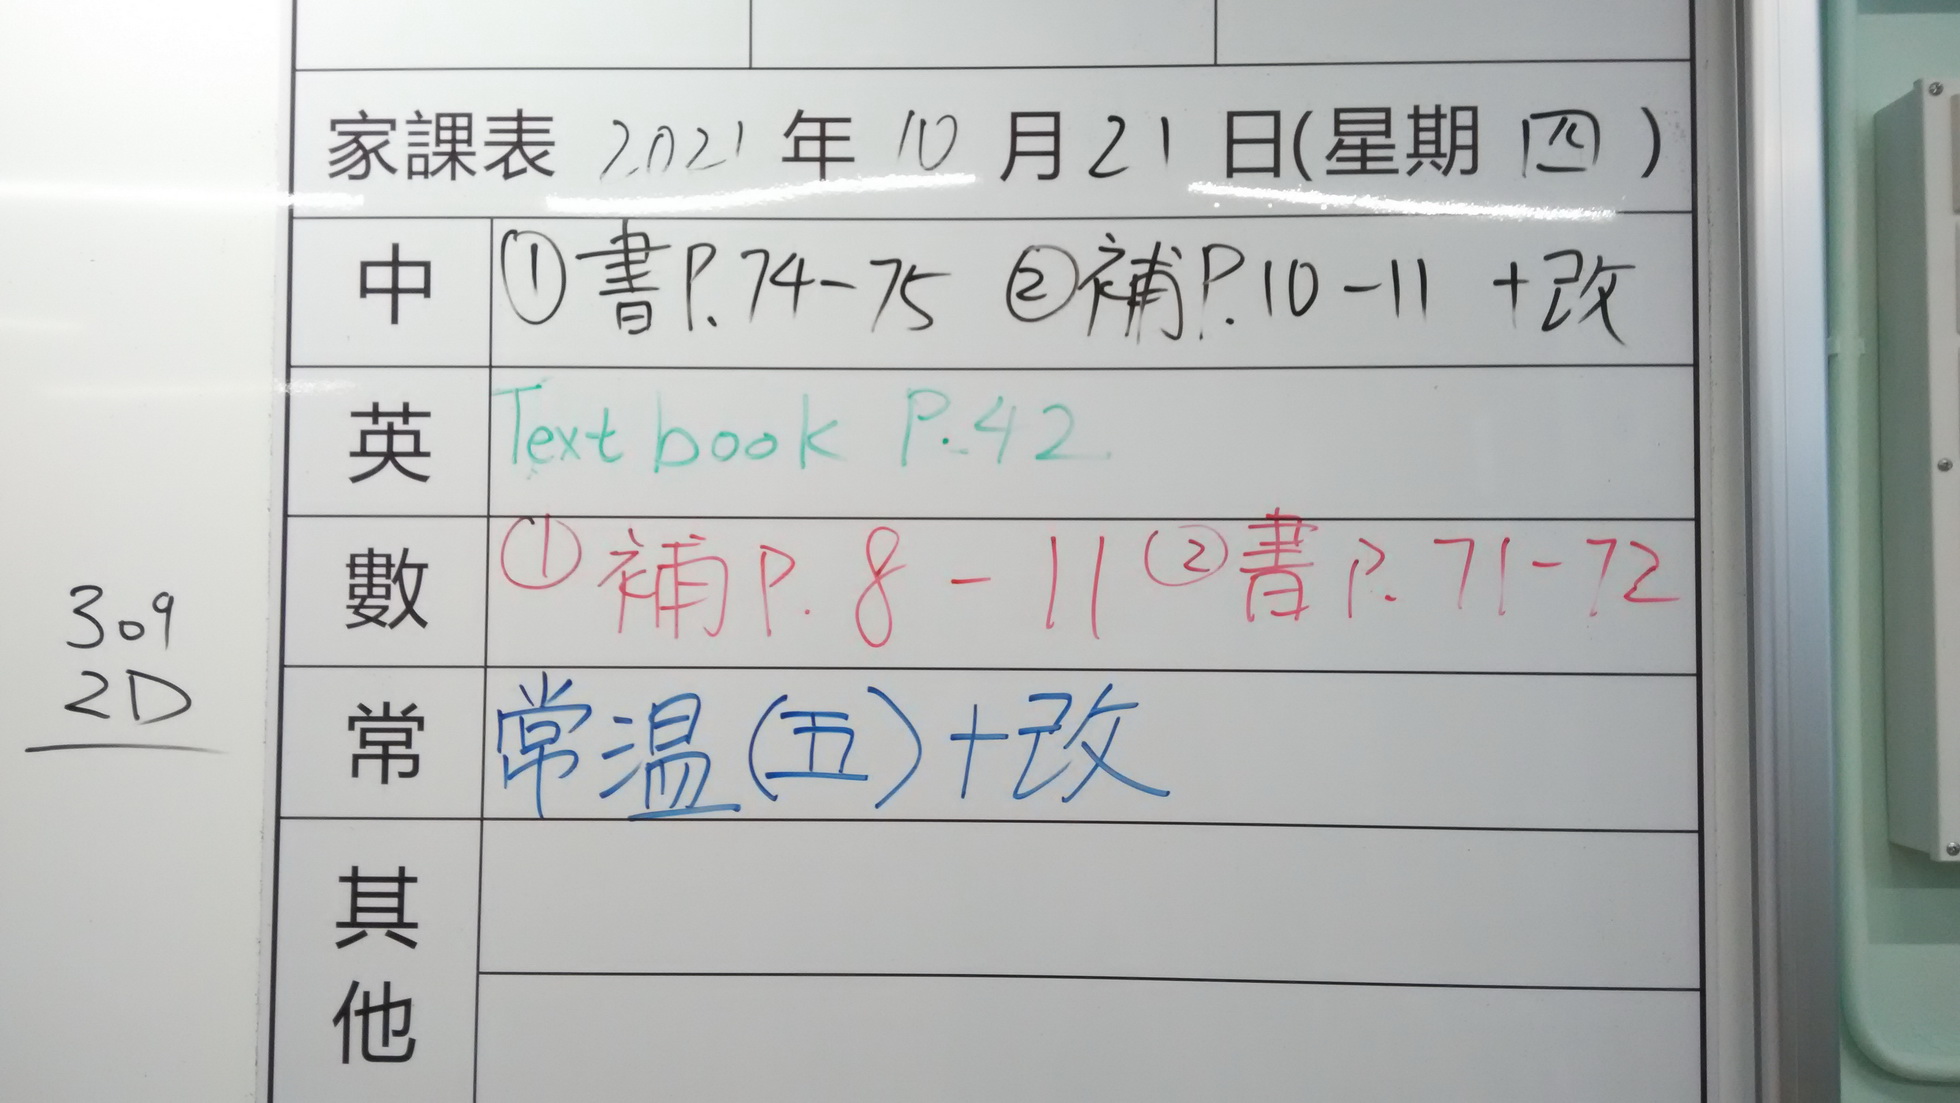 家課表 2021 年 10 月 21 日(星期 四 )
中 ①書P.74-75 ②補P.10-11 +改
英 Textbook P.42
數 ①補P.8-11 ②書P.71-72
常 常温(五)+改
其他
309
2D